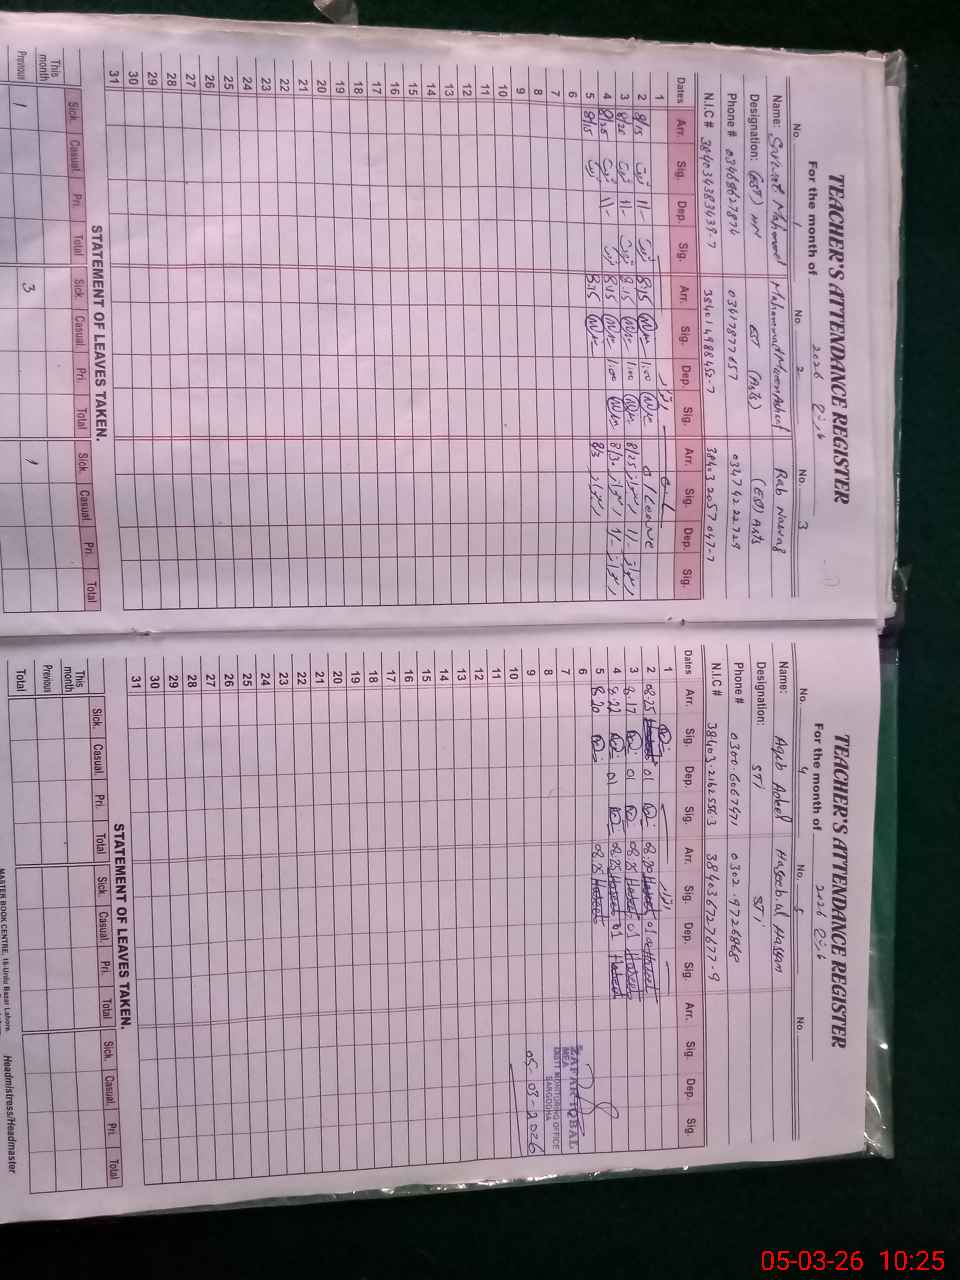 TEACHER'S ATTENDANCE REGISTER
For the month of 2026
No. 1 No. 2 No. 3
Name: Muhammad Rab Nawaz
Designation: (EST) EST (Arts) (ESE) Arts
Phone # 03468627874 03417877657 0347 42 22 729
N.I.C # 384034383439-7 384014988452-7 38403 2057047-7
Dates Arr. Sig. Dep. Sig. Arr. Sig. Dep. Sig. Arr. Sig. Dep. Sig.
1 اتوار
2 8/15 11- 8:15 1:00 o/Leave
3 8/20 11- 8:15 1:00 8/25 11-
4 8/25 11- 8:15 1:00 8/30 11-
5 8/15 8:15
6
7
8
9
10
11
12
13
14
15
16
17
18
19
20
21
22
23
24
25
26
27
28
29
30
31
STATEMENT OF LEAVES TAKEN.
Sick. Casual. Pri. Total Sick. Casual. Pri. Total Sick. Casual. Pri. Total
This month
Previous 1 3 1
TEACHER'S ATTENDANCE REGISTER
For the month of 2026
No. 4 No. 5 No.
Name: Aqib Adeel Haseeb.ul Hassan
Designation: STI STI
Phone # 0300.6067471 0302.9726868
N.I.C # 38403.2162556 3 3840367277677-9
Dates Arr. Sig. Dep. Sig. Arr. Sig. Dep. Sig. Arr. Sig. Dep. Sig.
1 اتوار
2 08:25 01 08:20 Haseeb 01:00 Haseeb
3 8.17 01 08:25 Haseeb 01 Haseeb
4 8.22 01 08:25 Haseeb 01 Haseeb
5 8.20 08:25 Haseeb
6
7
8
9
10
11
12
13
14
15
16
17
18
19
20
21
22
23
24
25
26
27
28
29
30
31
ZAFAR IQBAL
MEA
DISTT MONITORING OFFICE
SARGODHA
05-03-2026
STATEMENT OF LEAVES TAKEN.
Sick. Casual. Pri. Total Sick. Casual. Pri. Total Sick. Casual. Pri. Total
This month
Previous
Total
MASTER BOOK CENTRE, 16-Urdu Bazar Lahore.
Headmistress/Headmaster
05-03-26 10:25